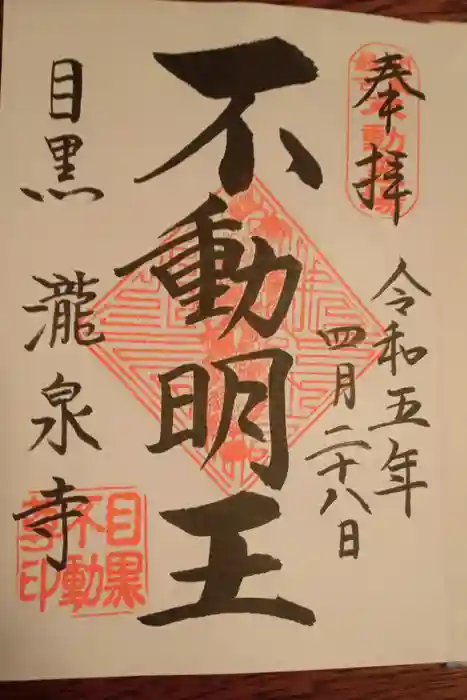 奉拝
令和五年
四月二十八日
不動明王
目黒 瀧泉寺
目黒
不動